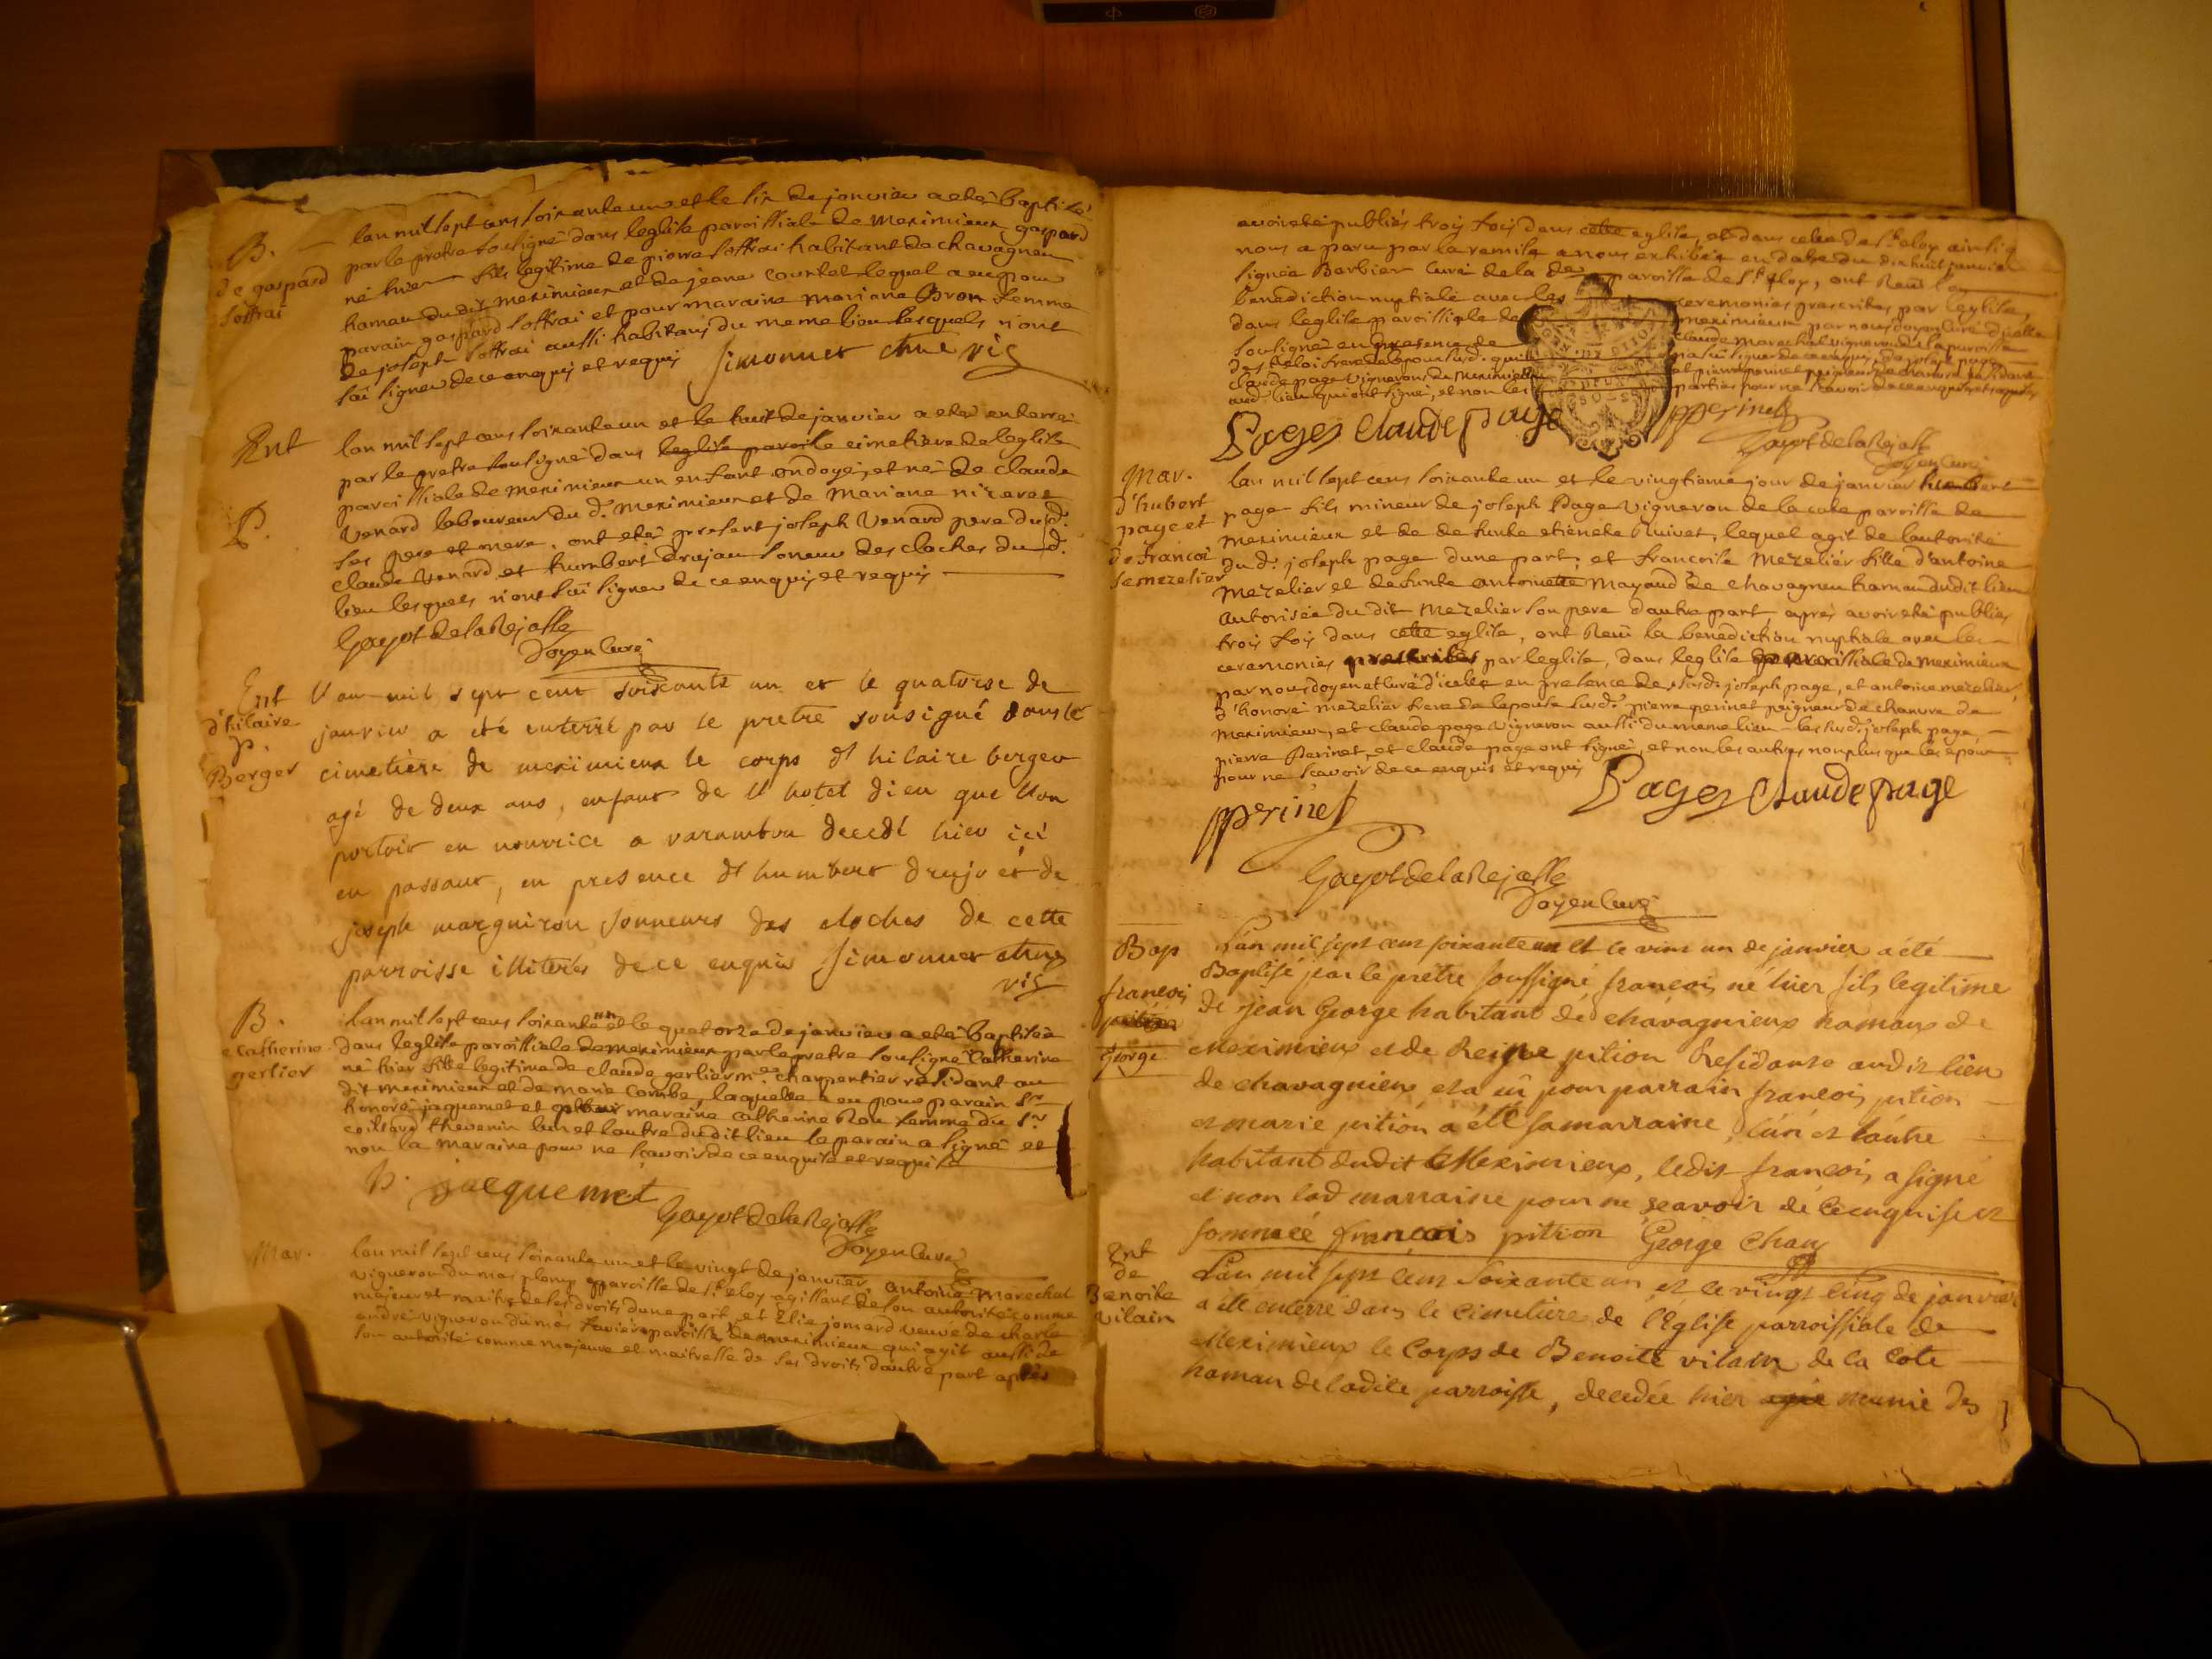 B. lan mil sept cens soixante un et le six de janvier a eté baptisé
de gaspard par le pretre sousigné dans leglise paroissiale de meximieux gaspard
soffrai né hier fils legitime de pierre soffrai habitant de chavagneu
hamau du dit meximieux et de jeane courtet lequel a eu pour
parain gaspard soffrai et pour maraine mariane Bron femme
de joseph soffrai aussi habitans du meme lieu lesquels n'ont
sai signer de ce enquis et requis Simonnet chne vic
Ent lan mil sept cens soixante un et le huit de janvier a eté enterré
par le pretre sousigné dans leglise paroile cimetiere de leglise
paroissiale de meximieux un enfant ondoyé, et né de claude
P. Venard laboureur du d. meximieux et de mariane
ses pere et mere, ont eté present joseph Venard pere dud.
claude Venard et humbert drujau soneur des cloches dud.
lieu lesquels n'ont sai signer de ce enquis et requis
Gayot de la Rejasse
Doyen Curé
Ent L'an mil sept cent soixante un et le quatorse de
d'hilaire janvier a été enterré par le pretre sousigné dans le
P.
Berger cimetière de meximieux le corps d'hilaire berger
agé de deux ans, enfant de l'hotel dieu que l'on
portoit en nourrice a varambon decedé hier ici
en passant, en presence d'humbert drujo et de
joseph marguiron sonneurs des cloches de cette
parroisse illiterés de ce enquis Simonnet chne
vic
B. lan mil sept cens soixante un et le quatorze de janvier a eté baptisée
catherine dans leglise paroissiale de meximieux par le pretre sousigné catherine
gerlier né hier fille legitime de claude gerlier me charpentier residant au
dit meximieux et de marie combe, laquelle a eu pour parain Sr
honoré jaquemet et pour maraine catherine Rou femme du Sr
thevenin lun et lautre dudit lieu le parain a signé et
non la maraine pour ne scavoir de ce enquise et requise
h. jacquemet
Gayot de la Rejasse
Doyen Curé
Mar. lan mil sept cens soixante un et le vingt de janvier, antoine Marechal
vigneron du mas plomp paroisse de st eloy agissant de son autorité comme
majeur et maitre de ses droits dune part, et Elie jomard veuve de charle
andré vigneron du mas paroisse de meximieux qui agit aussi de
son autorité comme majeure et maitresse de ses droits dautre part après
avoir eté publiés trois fois dans cette eglise, et dans celle de st eloy ainsi q
nous a paru par la remise a nous exhibée en date du dix huit janvier
signée Barbier Curé de la de paroisse de st eloy, ont Reçu la
benediction nuptiale avec les ceremonies prescrites par leglise,
dans leglise paroissiale de meximieux par nous doyen curé d'icelle
sousigné en presence de claude marechal vigneron de la paroisse
de st eloi frere de lepoux susd. qui n'a sai signer de ce enquis, de joseph page,
claude page vignerons de meximieux et pierre perinet peigneur de chanvre residant
aud. lieu qui ont signé, et non les parties pour ne scavoir de ce enquis et requis
Pages Claude page pperinet
Gayot de la Rejasse
Doyen Curé
Mar. lan mil sept cens soixante un et le vingtieme jour de janvier humbert
d'hubert page fils mineur de joseph Page vigneron de la cote paroisse de
page et meximieux et de defunte etienete Ruivet, lequel agit de lautorité
de francoi du d. joseph page dune part, et francoise Mezelier fille d'antoine
se mezelier Mezelier et defunte antoinette Mayaud de chavagneu hamau dudit lieu
autorisée du dit Mezelier son pere dautre part, après avoir eté publiés
trois fois dans cette eglise, ont Reçu la benediction nuptiale avec les
ceremonies prescrites par leglise, dans leglise paroissiale de meximieux
par nous doyen et curé d'icelle en presence de susd. joseph page, et antoine mezelier,
d'honoré mezelier frere de lepouse susd. pierre perinet peigneur de chanvre de
meximieux, et claude page vigneron aussi du meme lieu les susd. joseph page,
pierre Perinet, et claude page ont signé, et non les autres non plus que les epoux
pour ne scavoir de ce enquis et requis Pages Claude page
pperinet
Gayot de la Rejasse
Doyen Curé
Bap L'an mil sept cens soixante un et le vint un de janvier a été
francois Baptisé par le prêtre soussigné, francois né hier fils legitime
george de jean George habitant de chavagnieux hamaux de
Meximieux et de Reine pition Residante audit lieu
de chavagnieux, et a eu pour parrain francois pition
et marie pition a été sa marraine, l'un et l'autre
habitant dudit Meximieux, ledit francois a signé
et non lad marraine pour ne scavoir de ce enquise et
sommée francois pition George Chan
Ent L'an mil sept cens soixante un et le vingt cinq de janvier
de
Benoite a été enterré dans le cimetiere de l'Église parroissiale de
vilain Meximieux le Corps de Benoite vilain de la Cote
hamau de ladite parroisse, decedée hier agée munie des